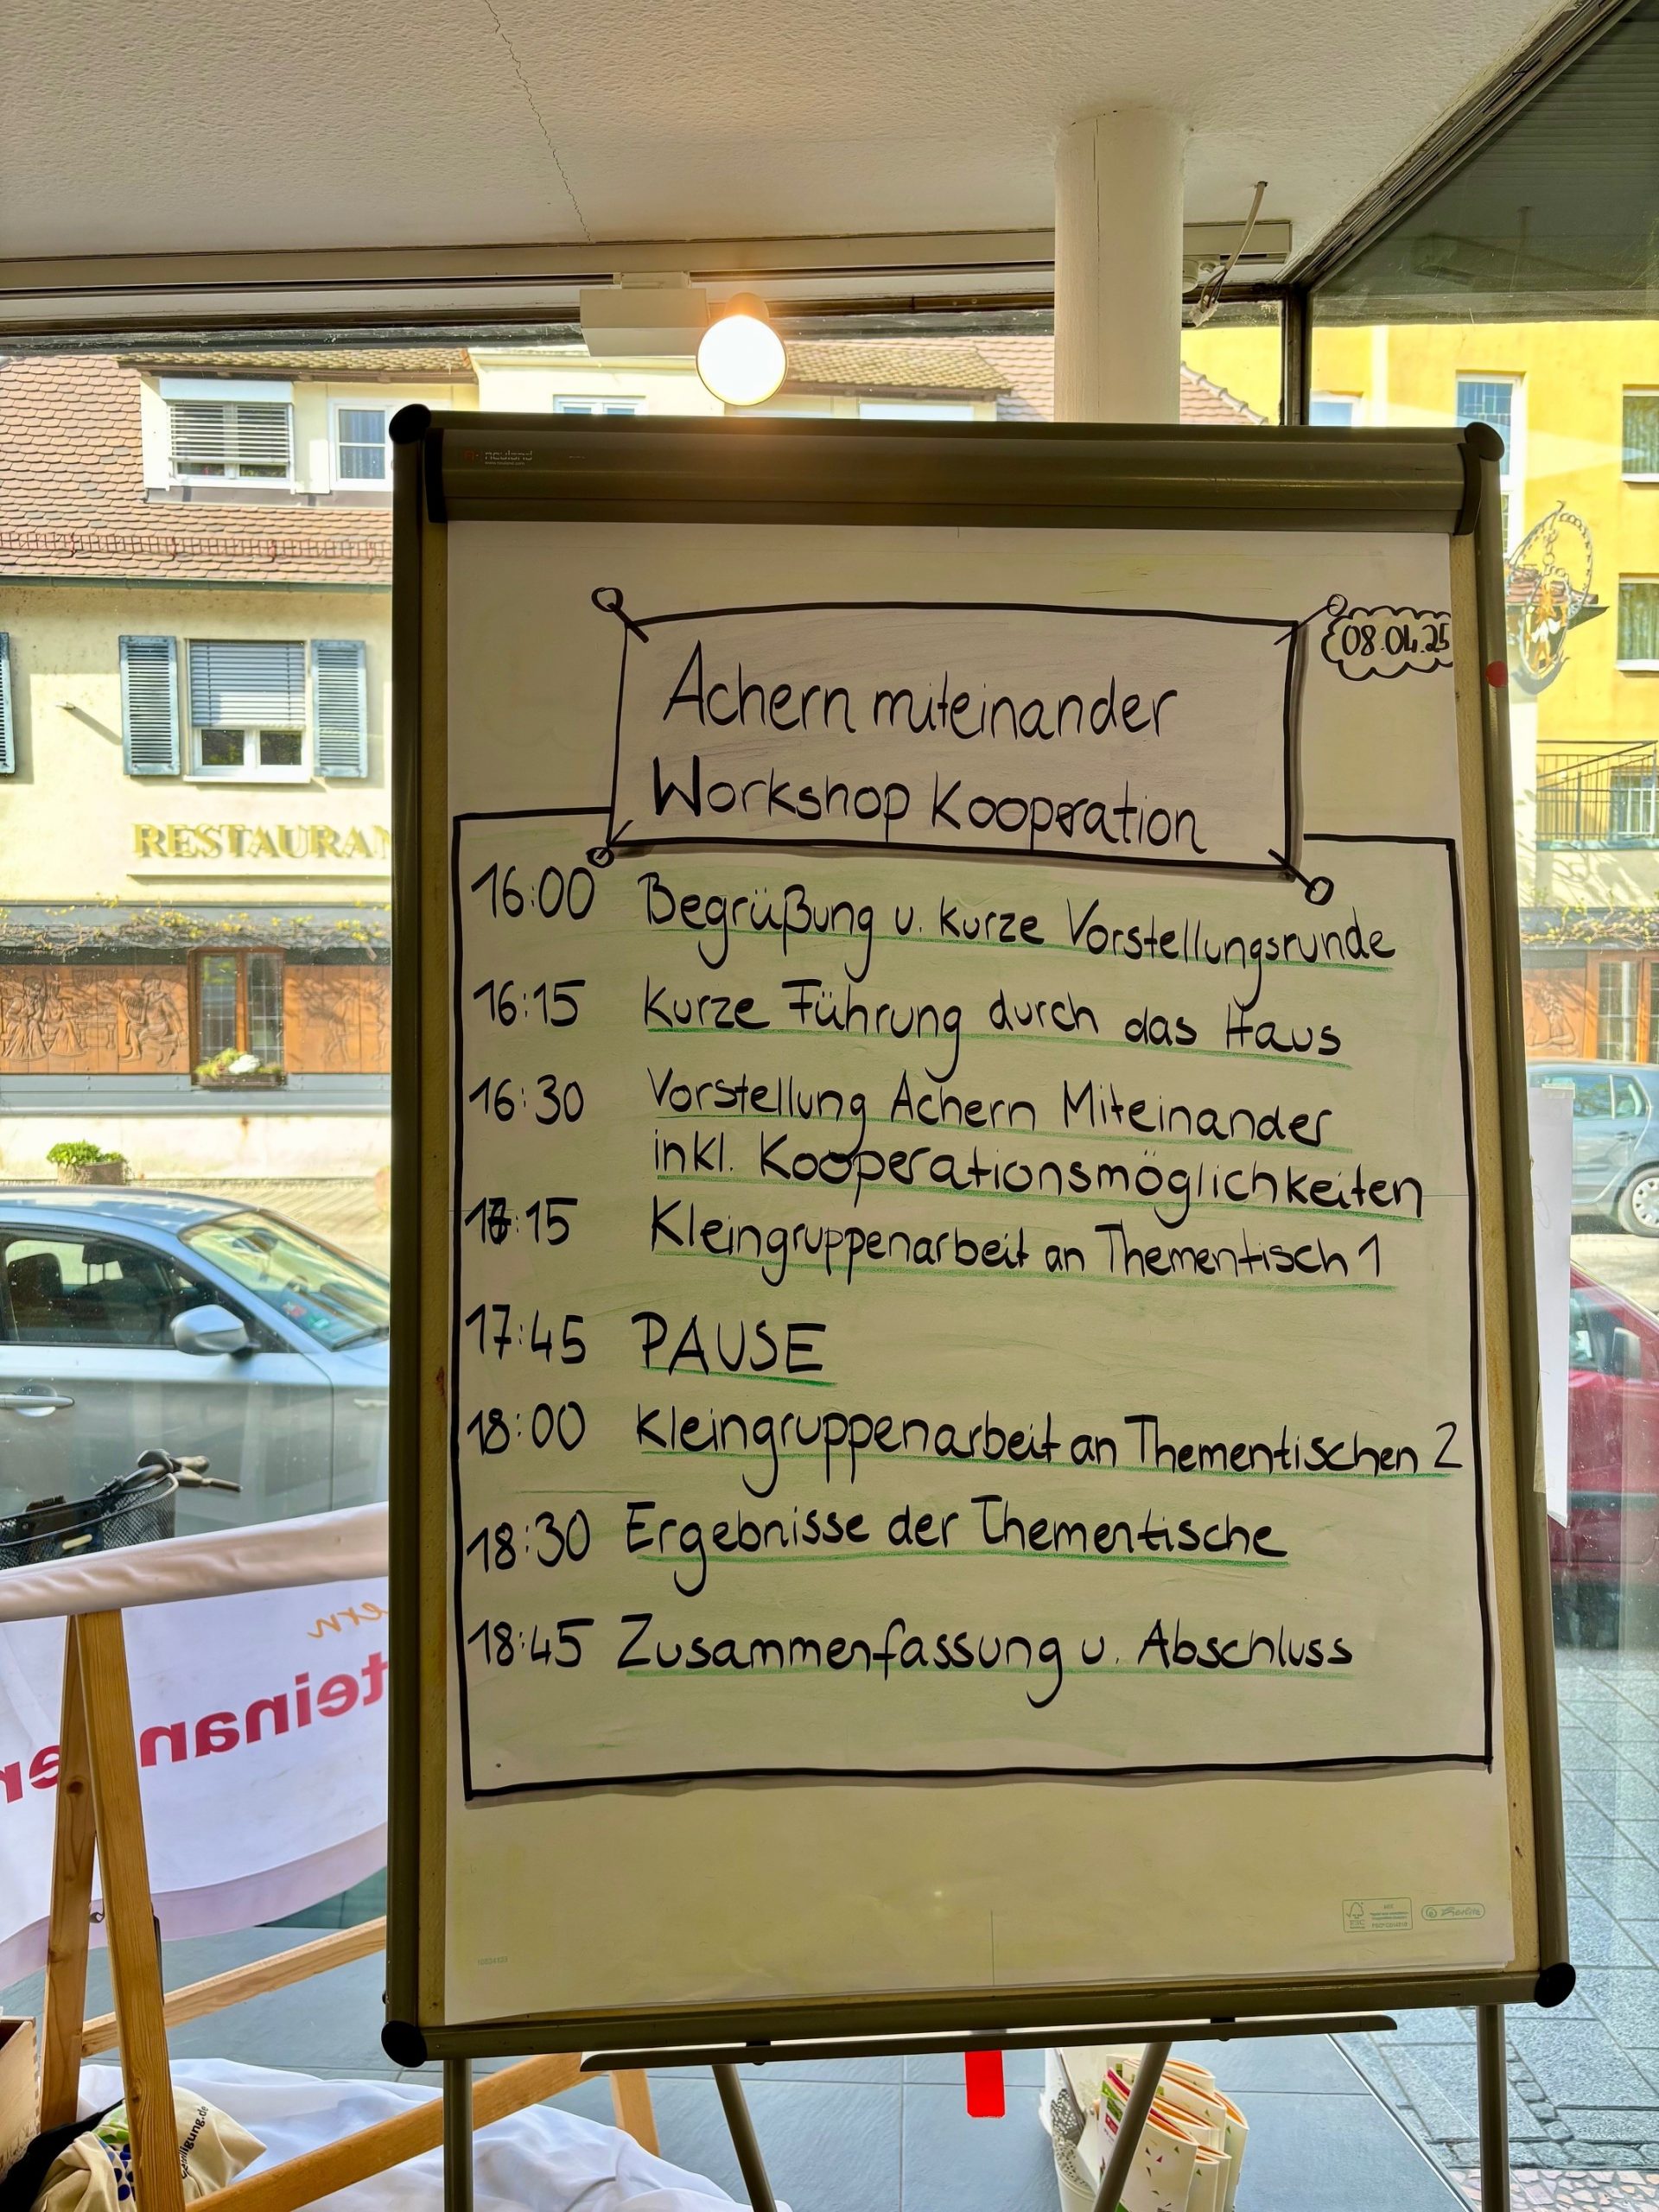 RESTAURAN
neuland
08.04.25
Achern miteinander
Workshop Kooperation
16:00 Begrüßung u. kurze Vorstellungsrunde
16:15 Kurze Führung durch das Haus
16:30 Vorstellung Achern Miteinander
inkl. Kooperationsmöglichkeiten
17:15 Kleingruppenarbeit an Thementisch 1
17:45 PAUSE
18:00 Kleingruppenarbeit an Thementischen 2
18:30 Ergebnisse der Thementische
18:45 Zusammenfassung u. Abschluss
ern
teinan
er